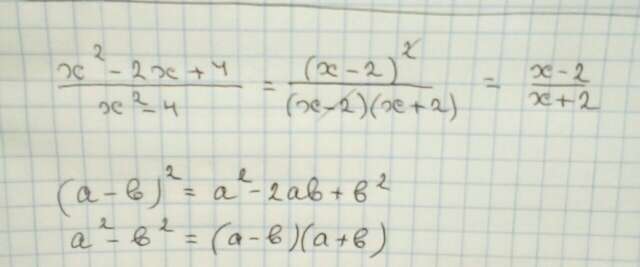 (x² - 2x + 4)/(x² - 4) = (x - 2)²/((x - 2)(x + 2)) = (x - 2)/(x + 2)
(a - в)² = a² - 2aв + в²
a² - в² = (a - в)(a + в)